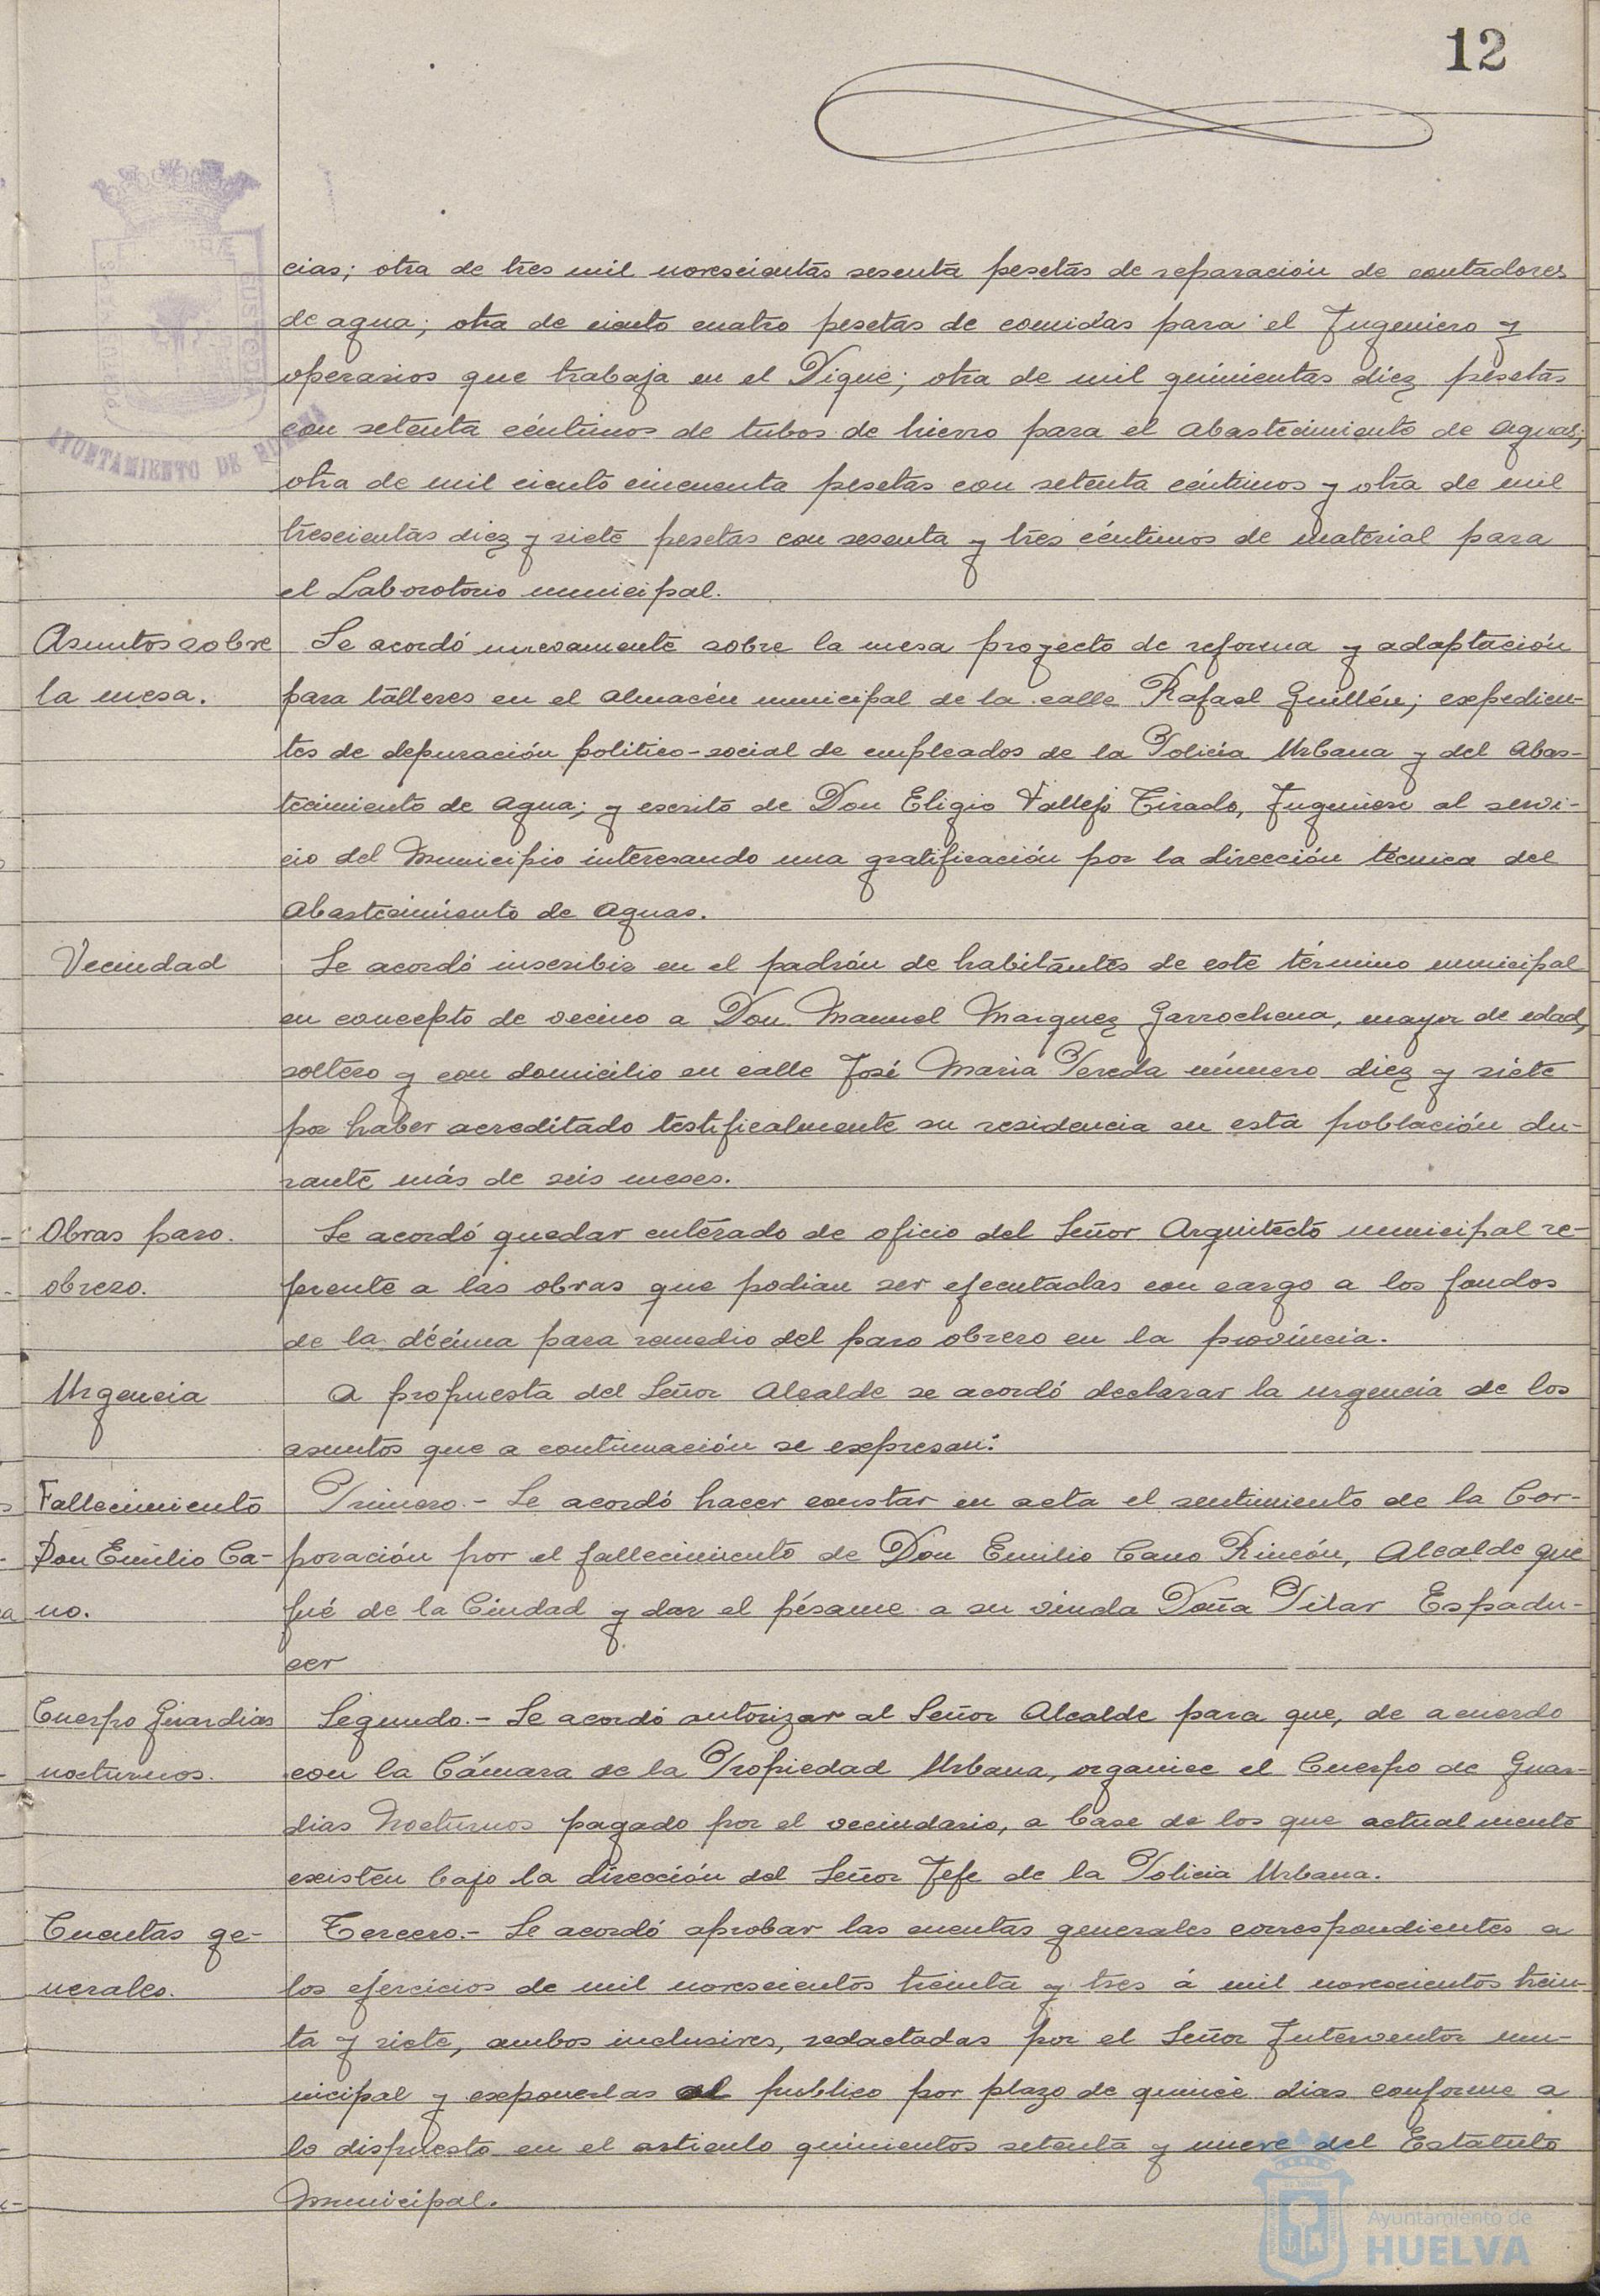 12
cias; otra de tres mil novescientas sesenta pesetas de reparación de contadores
de agua; otra de ciento cuatro pesetas de comidas para el Ingeniero y
operarios que trabaja en el Dique; otra de mil quinientas diez pesetas
con setenta céntimos de tubos de hierro para el abastecimiento de aguas;
AYUNTAMIENTO DE HUELVA
otra de mil ciento cincuenta pesetas con setenta céntimos y otra de mil
trescientas diez y siete pesetas con sesenta y tres céntimos de material para
el Laborotorio municipal.
Asuntos sobre Se acordó nuevamente sobre la mesa proyecto de reforma y adaptación
la mesa. para talleres en el almacén municipal de la calle Rafael Guillén; expedien-
tes de depuración politico-social de empleados de la Policia Urbana y del Abas-
tecimiento de agua; y escrito de Don Eligio Vallejo Tirado, Ingeniero al servi-
cio del Municipio interesando una gratificación por la dirección técnica del
Abastecimiento de Aguas.
Vecindad Se acordó inscribir en el padrón de habitantes de este término municipal
en concepto de vecino a Don Manuel Marquez Garrochena, mayor de edad,
soltero y con domicilio en calle José Maria Pereda número diez y siete
por haber acreditado testificalmente su residencia en esta población du-
rante más de seis meses.
Obras paro. Se acordó quedar enterado de oficio del Señor Arquitecto municipal re-
obrero. ferente a las obras que podian ser ejecutadas con cargo a los fondos
de la décima para remedio del paro obrero en la provincia.
Urgencia A propuesta del Señor Alcalde se acordó declarar la urgencia de los
asuntos que a continuación se expresan:
Fallecimiento Primero.- Se acordó hacer constar en acta el sentimiento de la Cor-
Don Emilio Ca- poración por el fallecimiento de Don Emilio Cano Rincón, Alcalde que
no. fué de la Ciudad y dar el pésame a su viuda Doña Pilar Espadu-
cer
Cuerpo Guardias Segundo.- Se acordó autorizar al Señor Alcalde para que, de acuerdo
nocturnos. con la Cámara de la Propiedad Urbana, organice el Cuerpo de Guar-
dias Nocturnos pagado por el vecindario, a base de los que actualmente
existen bajo la dirección del Señor Jefe de la Policia Urbana.
Cuentas ge- Tercero.- Se acordó aprobar las cuentas generales correspondientes a
nerales. los ejercicios de mil novescientos treinta y tres á mil novescientos trein-
ta y siete, ambos inclusives, redactadas por el Señor Interventor mu-
nicipal y exponerlas al publico por plazo de quince dias conforme a
lo dispuesto en el articulo quinientos setenta y nueve del Estatuto
Municipal.
Ayuntamiento de
HUELVA